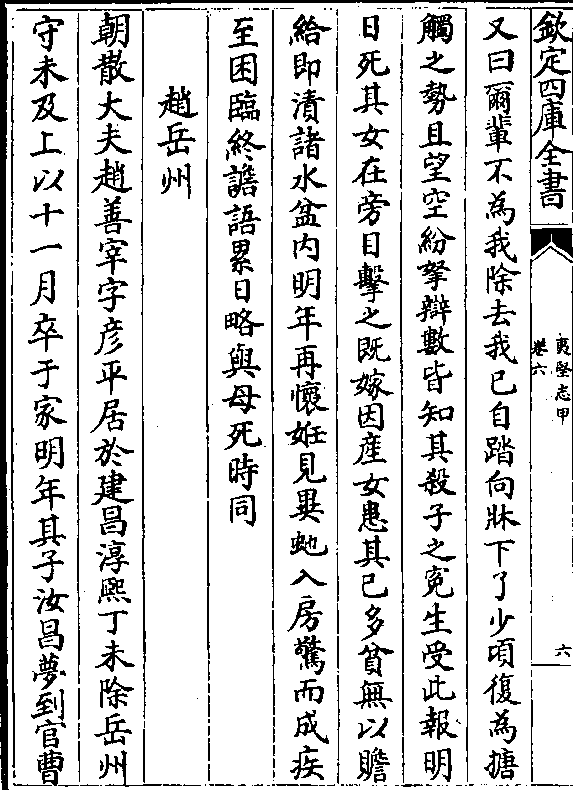 欽定四庫全書
夷堅志甲
卷六
六
又曰爾輩不為我除去我已自踏向牀下了少頃復為搪
觸之勢且望空紛拏辯數皆知其殺子之寃生受此報明
日死其女在旁目擊之既嫁因產女患其已多貧無以贍
給即漬諸水盆内明年再懷姙見異虵入房驚而成疾
至困臨終譫語累日略與母死時同
趙岳州
朝散大夫趙善宰字彦平居於建昌淳熙丁未除岳州
守未及上以十一月卒于家明年其子汝昌夢到官曹